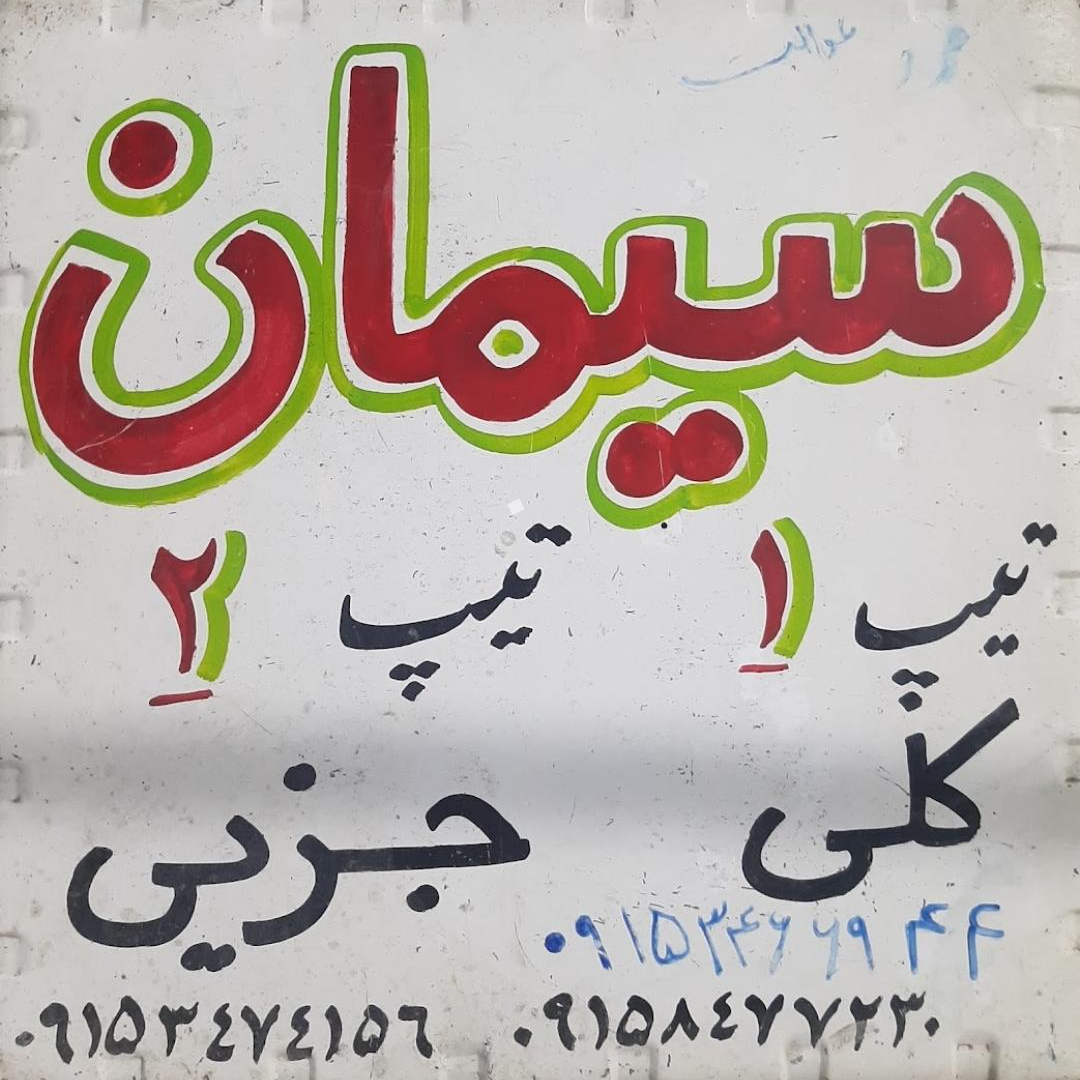 سیمان
تیپ ۱ تیپ ۲
کلی جزیی
۰۹۱۵۳۴۶۶۹۴۴
۰۹۱۵۳۴۷۴۱۵۶ ۰۹۱۵۸۴۷۷۲۳۰